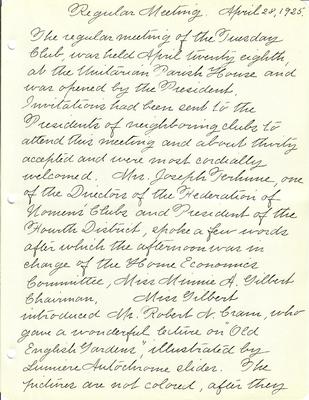 Regular Meeting. April 28, 1925.
The regular meeting of the Tuesday
Club, was held April twenty eighth,
at the Unitarian Parish House and
was opened by the President.
Invitations had been sent to the
Presidents of neighboring clubs to
attend this meeting and about thirty
accepted and were most cordially
welcomed. Mrs. Joseph Terhune, one
of the Directors of the Federation of
Women's Clubs and President of the
Fourth District, spoke a few words
after which the afternoon was in
charge of the Home Economics
Committee, Miss Minnie A. Gilbert
Chairman. Miss Gilbert
introduced Mr. Robert N. Cram, who
gave a wonderful lecture on "Old
English Gardens", illustrated by
Lumiere Autochrome slides. The
pictures are not colored, after they